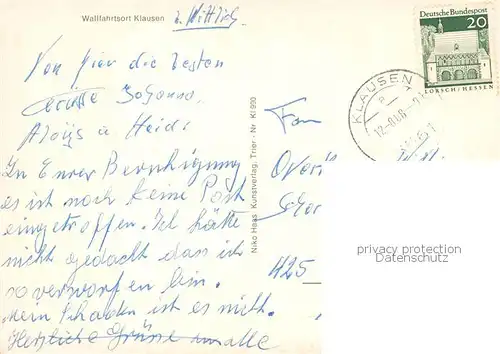 Wallfahrtsort Klausen b. Wittlich
Von hier die besten
Grüße Johanna
Aloys u. Heidi
In Eurer Beruhigung
es ist noch keine Post
eingetroffen. Ich hätte
nicht gedacht das ich
so verworfen bin.
Mein Schaden ist es nicht.
Herzliche Grüße an alle
Niko Haas Kunstverlag, Trier - Nr. Kl 993
Deutsche Bundespost
20
LORSCH/HESSEN
KLAUSEN
Frau
425
privacy protection
Datenschutz